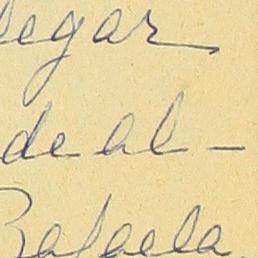 legar
de al-
Rafaela